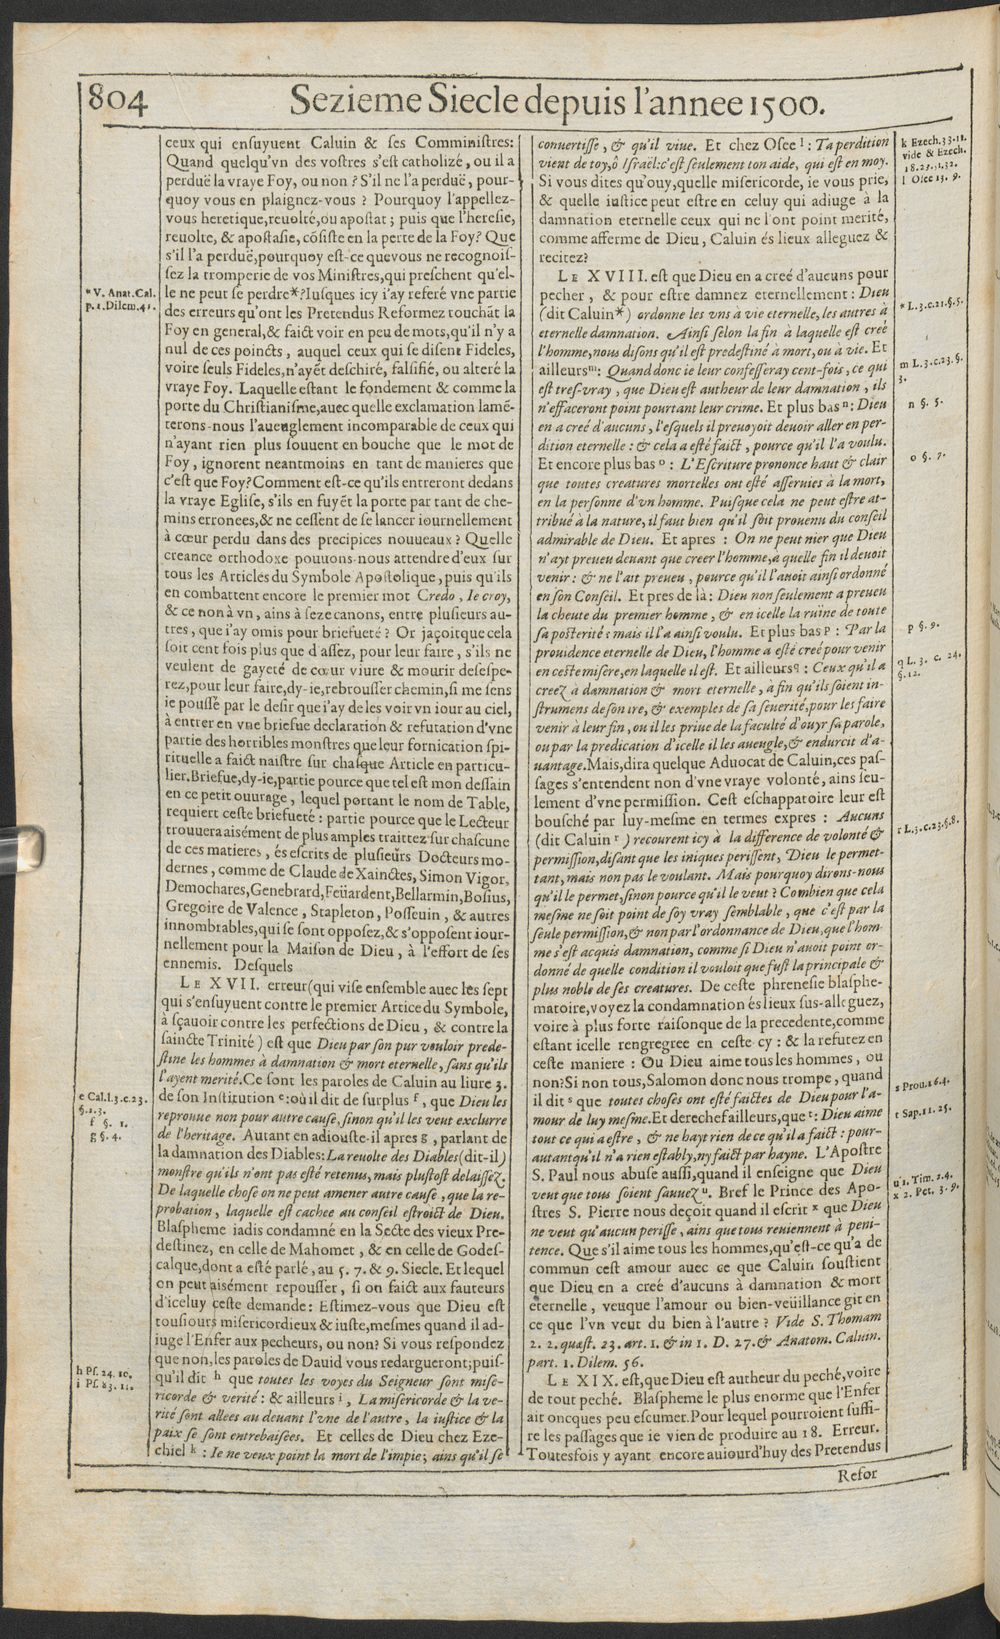 804 Sezieme Siecle depuis l'annee 1500.
ceux qui ensuyuent Caluin & ses Comministres:
Quand quelqu'vn des vostres s'est catholizé, ou il a
perduë la vraye Foy, ou non ? S'il ne l'a perduë, pour-
quoy vous en plaignez-vous ? Pourquoy l'appellez-
vous heretique, reuolté, ou apostat ; puis que l'heresie,
reuolte, & apostasie, cõsiste en la perte de la Foy? Que
s'il l'a perduë, pourquoy est-ce que vous ne recognois-
sez la tromperie de vos Ministres, qui preschent qu'el-
le ne peut se perdre*? Iusques icy i'ay referé vne partie
des erreurs qu'ont les Pretendus Reformez touchãt la
Foy en general, & faict voir en peu de mots, qu'il n'y a
nul de ces poincts, auquel ceux qui se disent Fideles,
voire seuls Fideles, n'ayẽt deschiré, falsifié, ou alteré la
vraye Foy. Laquelle estant le fondement & comme la
porte du Christianisme, auec quelle exclamation lamẽ-
terons-nous l'aueuglement incomparable de ceux qui
n'ayant rien plus souuent en bouche que le mot de
Foy, ignorent neantmoins en tant de manieres que
c'est que Foy? Comment est-ce qu'ils entreront dedans
la vraye Eglise, s'ils en fuyẽt la porte par tant de che-
mins erronees, & ne cessent de se lancer iournellement
à cœur perdu dans des precipices nouueaux ? Quelle
creance orthodoxe pouuons-nous attendre d'eux sur
tous les Articles du Symbole Apostolique, puis qu'ils
en combattent encore le premier mot Credo, Ie croy,
& ce non à vn, ains à seze canons, entre plusieurs au-
tres, que i'ay omis pour briefueté ? Or jaçoit que cela
soit cent fois plus que d'assez, pour leur faire, s'ils ne
veulent de gayeté de cœur viure & mourir desespe-
rez, pour leur faire, dy-ie, rebrousser chemin, si me sens
ie poussé par le desir que i'ay de les voir vn iour au ciel,
à entrer en vne briefue declaration & refutation d'vne
partie des horribles monstres que leur fornication spi-
rituelle a faict naistre sur chasque Article en particu-
lier. Briefue, dy-ie, partie pource que tel est mon dessain
en ce petit ouurage, lequel portant le nom de Table,
requiert ceste briefueté : partie pource que le Lecteur
trouuera aisément de plus amples traittez sur chascune
de ces matieres, és escrits de plusieurs Docteurs mo-
dernes, comme de Claude de Xainctes, Simon Vigor,
Demochares, Genebrard, Feüardent, Bellarmin, Bosius,
Gregoire de Valence, Stapleton, Posseuin, & autres
innombrables, qui se sont opposez, & s'opposent iour-
nellement pour la Maison de Dieu, à l'effort de ses
ennemis. Desquels
LE XVII. erreur (qui vise ensemble auec les sept
qui s'ensuyuent contre le premier Artice du Symbole,
à sçauoir contre les perfections de Dieu, & contre la
saincte Trinité) est que Dieu par son pur vouloir prede-
stine les hommes à damnation & mort eternelle, sans qu'ils
l'ayent merité. Ce sont les paroles de Caluin au liure 3.
de son Institution e: où il dit de surplus f, que Dieu les
reprouue non pour autre cause, sinon qu'il les veut exclurre
de l'heritage. Autant en adiouste-il apres g, parlant de
la damnation des Diables: La reuolte des Diables (dit-il)
monstre qu'ils n'ont pas esté retenus, mais plustost delaissez.
De laquelle chose on ne peut amener autre cause, que la re-
probation, laquelle est cachee au conseil estroict de Dieu.
Blaspheme iadis condamné en la Secte des vieux Pre-
destinez, en celle de Mahomet, & en celle de Godes-
calque, dont a esté parlé, au 5. 7. & 9. Siecle. Et lequel
on peut aisément repousser, si on faict aux fauteurs
d'iceluy ceste demande: Estimez-vous que Dieu est
tousiours misericordieux & iuste, mesmes quand il ad-
iuge l'Enfer aux pecheurs, ou non? Si vous respondez
que non, les paroles de Dauid vous redargueront; puis-
qu'il dit h que toutes les voyes du Seigneur sont mise-
ricorde & verité : & ailleurs i, La misericorde & la ve-
rité sont allees au deuant l'vne de l'autre, la iustice & la
paix se sont entrebaisées. Et celles de Dieu chez Eze-
chiel k : Ie ne veux point la mort de l'impie; ains qu'il se
* V. Anat. Cal.
p. 1. Dilem. 41.
e Cal. l. 3. c. 23.
§. 1. 3.
f §. 1.
g §. 4.
h Ps. 24. 10.
i Ps. 83. 11.
conuertisse, & qu'il viue. Et chez Osee l : Ta perdition
vient de toy, ô Israël: c'est seulement ton aide, qui est en moy.
Si vous dites qu'ouy, quelle misericorde, ie vous prie,
& quelle iustice peut estre en celuy qui adiuge à la
damnation eternelle ceux qui ne l'ont point merité,
comme afferme de Dieu, Caluin és lieux alleguez &
recitez?
LE XVIII. est que Dieu en a creé d'aucuns pour
pecher, & pour estre damnez eternellement : Dieu
(dit Caluin*) ordonne les vns à vie eternelle, les autres à
eternelle damnation. Ainsi selon la fin à laquelle est creé
l'homme, nous disons qu'il est predestiné à mort, ou à vie. Et
ailleurs m: Quand donc ie leur confesseray cent-fois, ce qui
est tres-vray, que Dieu est autheur de leur damnation, ils
n'effaceront point pourtant leur crime. Et plus bas n: Dieu
en a creé d'aucuns, l'esquels il preuoyoit deuoir aller en per-
dition eternelle : & cela a esté faict, pource qu'il l'a voulu.
Et encore plus bas o : L'Escriture prononce haut & clair
que toutes creatures mortelles ont esté asseruies à la mort,
en la personne d'vn homme. Puisque cela ne peut estre at-
tribué à la nature, il faut bien qu'il soit prouenu du conseil
admirable de Dieu. Et apres : On ne peut nier que Dieu
n'ayt preueu deuant que creer l'homme, a quelle fin il deuoit
venir : & ne l'ait preueu, pource qu'il l'auoit ainsi ordonné
en son Conseil. Et pres de là: Dieu non seulement a preueu
la cheute du premier homme, & en icelle la ruïne de toute
sa posterité : mais il l'a ainsi voulu. Et plus bas p : Par la
prouidence eternelle de Dieu, l'homme a esté creé pour venir
en ceste misere, en laquelle il est. Et ailleurs q : Ceux qu'il a
creez à damnation & mort eternelle, à fin qu'ils soient in-
strumens de son ire, & exemples de sa seuerité, pour les faire
venir à leur fin, ou il les priue de la faculté d'ouyr sa parole,
ou par la predication d'icelle il les aueugle, & endurcit d'a-
uantage. Mais, dira quelque Aduocat de Caluin, ces pas-
sages s'entendent non d'vne vraye volonté, ains seu-
lement d'vne permission. Cest eschappatoire leur est
bousché par luy-mesme en termes expres : Aucuns
(dit Caluin r) recourent icy à la difference de volonté &
permission, disant que les iniques perissent, Dieu le permet-
tant, mais non pas le voulant. Mais pourquoy dirons-nous
qu'il le permet, sinon pource qu'il le veut ? Combien que cela
mesme ne soit point de soy vray semblable, que c'est par la
seule permission, & non par l'ordonnance de Dieu, que l'hom-
me s'est acquis damnation, comme si Dieu n'auoit point or-
donné de quelle condition il vouloit que fust la principale &
plus noble de ses creatures. De ceste phrenesie blasphe-
matoire, voyez la condamnation és lieux sus-alleguez,
voire à plus forte raison que de la precedente, comme
estant icelle rengregree en ceste cy : & la refutez en
ceste maniere : Ou Dieu aime tous les hommes, ou
non? Si non tous, Salomon donc nous trompe, quand
il dit s que toutes choses ont esté faictes de Dieu pour l'a-
mour de luy mesme. Et derechef ailleurs, que t: Dieu aime
tout ce qui a estre, & ne hayt rien de ce qu'il a faict : pour-
autant qu'il n'a rien estably, ny faict par hayne. L'Apostre
S. Paul nous abuse aussi, quand il enseigne que Dieu
veut que tous soient sauuez u. Bref le Prince des Apo-
stres S. Pierre nous deçoit quand il escrit x que Dieu
ne veut qu'aucun perisse, ains que tous reuiennent à peni-
tence. Que s'il aime tous les hommes, qu'est-ce qu'a de
commun cest amour auec ce que Caluin soustient
que Dieu en a creé d'aucuns à damnation & mort
eternelle, veu que l'amour ou bien-veüillance git en
ce que l'vn veut du bien à l'autre ? Vide S. Thomam
2. 2. quæst. 23. art. 1. & in 1. D. 27. & Anatom. Caluin.
part. 1. Dilem. 56.
LE XIX. est, que Dieu est autheur du peché, voire
de tout peché. Blaspheme le plus enorme que l'Enfer
ait oncques peu escumer. Pour lequel pourroient suffi-
re les passages que ie vien de produire au 18. Erreur.
Toutesfois y ayant encore auiourd'huy des Pretendus
Refor
k Ezech. 33. 11.
vide & Ezech.
18. 23. 32.
l Osee 13. 9.
* L. 3. c. 21. §. 5.
m L. 3. c. 23. §.
3.
n §. 5.
o §. 7.
p §. 9.
q L. 3. c. 24.
§. 12.
r L. 3. c. 23. §. 8.
s Prou. 16. 4.
t Sap. 11. 25.
u 1. Tim. 2. 4.
x 2. Pet. 3. 9.